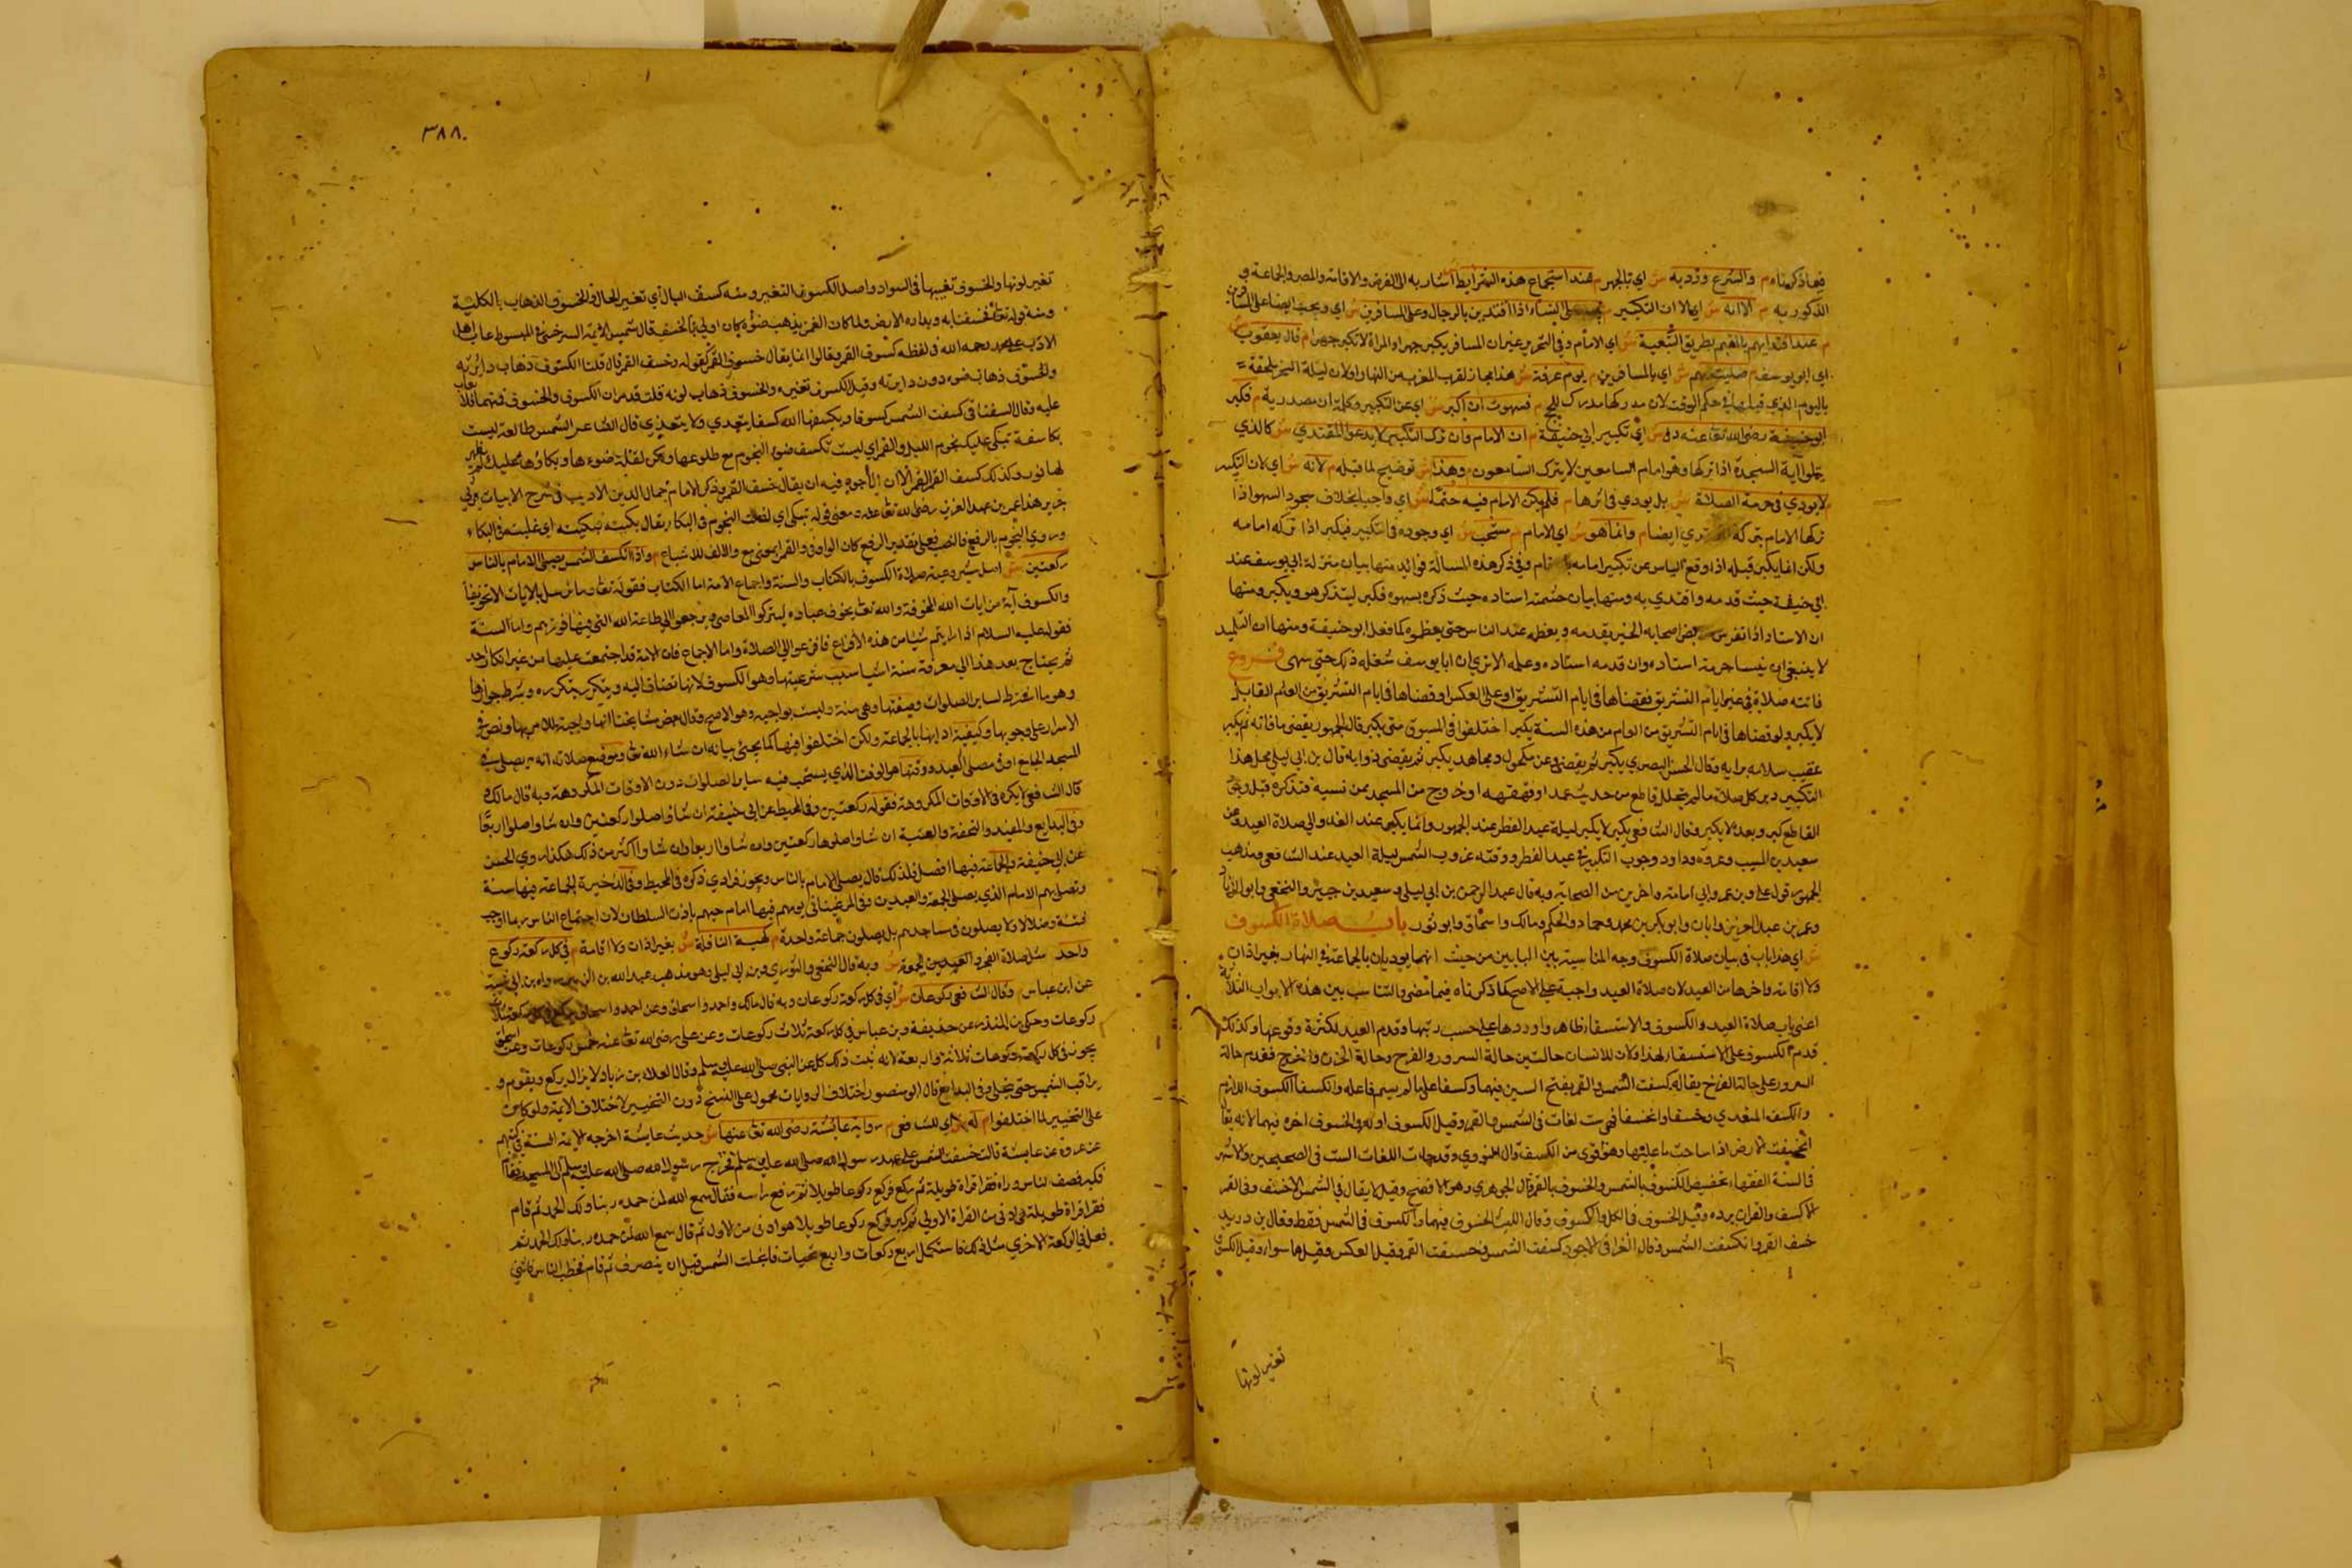 فيما ذكرناه م والشرع ورد به ش اي بالجهر م عند استجماع هذه الشرايط ش اشار به الى الفرض والاقامة والمصر والجماعة
المذكورية م الا انه ش اي الا ان التكبير على النساء اذا اقتدين بالرجال وعلى المسافرين ش اي ويجب ايضا على المسافرين
م عند اقتدايهم بالمقيم بطريق التبعية ش اي الامام وفي التحرير غير ان المسافر يكبر جهرا والمراة لا تكبر جهرا م قال يعقوب ش
اي ابو يوسف م صليت بهم ش اي بالمسافرين م يوم عرفة ش هذا مجاز لقرب المغرب من النهار اولان ليلة النحر ملحقة
باليوم الذي قبلها في حكم الوقت لان مدركها مدرك للحج م فسهوت ان اكبر ش اي عن التكبير وكلمة ان مصدرية م فكبر
ابو حنيفة رضى الله تعا عنه دل ش اي تكبير ابي حنيفة م ان الامام وان ترك التكبير لا يدعه المقتدي ش كالذي
يتلوا آية السجدة اذا تركها وهو امام السامعين لا يترك السامعون م وهذا ش توضيح لما قبله م لانه ش اي لان التكبير
لا يودي في حرمة الصلاة ش بل يودي في اثرها م فلم يكن الامام فيه حتما ش اي واجبا بخلاف سجود السهو اذا
تركها الامام يتركه المقتدي ايضا م وانما هو ش اي الامام م مستحب ش اي وجوده في التكبير فيكبر اذا تركه امامه
ولكن انما يكبر قبله اذا وقع الياس عن تكبير امامه وفي ذكر هذه المسالة فوايد منها بيان منزلة ابي يوسف عند
ابي حنيفة حيث قدمه واقتدي به ومنها بيان حشمة استاده حيث ذكره بسهوه فكبر ليتذكر هو ويكبر ومنها
ان الاستاد اذا تفرس بعض اصحابه الخير يقدمه ويعظمه عند الناس حتى يعظموه كما فعل ابو حنيفة ومنها ان التلميذ
لا ينبغي ان ينسا حرمة استاده وان قدمه استاده وعظمه الا تري ان ابا يوسف شغله ذلك حتى سهى فروع
فاتته صلاة في غير ايام التشريق فقضاها في ايام التشريق او على العكس او قضاها في ايام التشريق من العام القابل
لا يكبر ولو قضاها في ايام التشريق من العام من هذه السنة يكبر اختلفوا في المسبوق متى يكبر قال الجمهور يقضي ما فاته ثم يكبر
عقيب سلامه وقال الحسن البصري يكبر ثم يقضي وعن مكحول ومجاهد يكبر ثم يقضي قال بن ابي ليلى محل هذا
التكبير دبر كل صلاة ما لم يتخلل قاطع من حديث عمدا او قهقهه او خروج من المسجد فمن نسيه فتذكره قبل وجود
القاطع كبر وبعده لا يكبر وقال الشافعي يكبر لا يكبر ليلة عيد الفطر عند الجمهور وانما يكبر عند الغدو الى صلاة العيد وعن
سعيد بن المسيب وعروة وداود وجوب التكبير في عيد الفطر ووقته غروب الشمس ليلة العيد عند الشافعي ومذهب
الجمهور قول علي وبن عمر وابي امامة واخرين من الصحابة وبه قال عبد الرحمن بن ابي ليلى وسعيد بن جبير والنخعي وابو الزناد
وعمر بن عبد العزيز وابان وابو بكر بن محمد وحماد والحكم ومالك واسحاق وابو ثور باب صلاة الكسوف
ش اي هذا باب في بيان صلاة الكسوف وجه المناسبة بين البابين من حيث انهما يوديان بالجماعة في النهار بغير اذان
ولا اقامة واخرها من العيد لان صلاة العيد واجبة على الاصح كما ذكرناه فيما مضى والتناسب بين هذه الابواب الثلاثة
اعني باب صلاة العيد والكسوف والاستسقا ظاهر واوردوها على حسب رتبها وقدم العيد لكثرة وقوعها وكذلك
قدم الكسوف على الاستسقا لهذا ولان للانسان حالتين حالة السرور والفرح وحالة الحزن والترح فقدم حالة
السرور على حالة الترح يقال كسفت الشمس والقمر بفتح السين فيهما وكسفا على ما لم يسم فاعله وانكسفا الكسوف اللازم
والكسف المتعدي وخسفا وانخسفا فهي ست لغات في الشمس والقمر وقيل الكسوف اوله والخسوف اخره فيهما لانه يقال
انخسفت الارض اذا ساخت بما عليها وهو اقوى من الكسف قال النووي وقد جات اللغات الست في الصحيحين والاشهر
في السنة الفقهاء تخصيص الكسوف بالشمس والخسوف بالقمر قال الجوهري وهو الافصح وقيل لا يقال في الشمس الا خسف وفي القمر
الا كسف والقران يرده وقيل الخسوف في الكل والكسوف وقال الليث الخسوف فيهما والكسوف في الشمس فقط وقال بن دريد
خسف القمر وانكسفت الشمس وقال الفرا في الاجود كسفت الشمس وخسفت القمر وقيل العكس وقيل هما سواء وقيل الكسوف
تغير لونها
٣٨٨
تغير لونها والخسوف تغيبها في السواد واصل الكسوف التغير ومنه كسف البال اي تغير الحال والخسوف الذهاب بالكلية
ومنه قوله تعا فخسفنا به وبداره الارض ولما كان القمر يذهب ضوؤه كان اولى بالخسف قال شمس الائمة السرخسي في المبسوط عاب اهل
الادب على محمد رحمه الله في لفظه كسوف القمر وقالوا انما يقال خسوف القمر كقوله وخسف القمر قال قلنا الكسوف ذهاب دايرته
والخسوف ذهاب ضوءه دون دايرته وقيل الكسوف تغيره والخسوف ذهاب لونه قلت قد مر ان الكسوف والخسوف فيهما فلا يعاب
عليه وقال السغناقي كسفت الشمس كسوفا وكسفها الله كسفا يتعدي ولا يتعدي قال الشاعر الشمس طالعة ليست
بكاسفة تبكي عليك نجوم الليل والقمرا اي ليست تكسف ضوء النجوم مع طلوعها ولكن لقلة ضوءها وبكاؤها عليك لم يظهر
لها نور وكذلك كسف القمر الا ان الاجود فيه ان يقال خسف القمر وذكر الامام جمال الدين الاديب في شرح الابيات يرثي
جرير هذا عمر بن عبد العزيز رضى الله تعا عنه ومعنى قوله تبكي اي تغلب النجوم في البكاء يقال بكيته فبكيته اي غلبته في البكاء
وروي النجوم بالرفع فالنصب فعلى تقدير الرفع كان الواو في والقمرا بمعنى مع والالف للاشباع م واذا انكسف الشمس يصلي الامام بالناس
ركعتين ش اصل مشروعية صلاة الكسوف بالكتاب والسنة واجماع الامة اما الكتاب فقوله تعا وما نرسل بالايات الا تخويفا
والكسوف آية من ايات الله المخوفة والله تعا يخوف عباده ليتركوا المعاصي ويرجعوا الى طاعة الله التي فيها فوزهم واما السنة
فقوله عليه السلام اذا رايتم شيا من هذه الافزاع فافزعوا الى الصلاة واما الاجماع فان الامة قد اجتمعت عليها من غير انكار احد
ثم يحتاج بعد هذا الى معرفة ستة اشيا سبب شرعيتها وهو الكسوف لانها تضاف اليه ويتكرر بتكرره وشرط جوازها
وهو ما اشترط لساير الصلوات وصفتها وهي سنة وليست بواجبه وهو الاصح وقال بعض مشايخنا انها واجبة للامر بها ونص في
الاسرار على وجوبها وكيفية ادايها بالجماعة ولكن اختلفوا فيها كما يجيئ بيانه ان شاء الله تعا وموضع صلاته انه يصلى في
المسجد الجامع او في مصلى العيد ووقتها هو الوقت الذي يستحب فيه ساير الصلوات دون الاوقات المكروهة وبه قال مالك و
قال الشافعي لا يكره في الاوقات المكروهة فقوله ركعتين وفي المحيط عن ابي حنيفة ان شاؤا صلوا ركعتين وان شاوا صلوا اربعا
وفي البدايع والمفيد والتحفة والغنية ان شاوا صلوها ركعتين وان شاوا اربعا وان شاوا اكثر من ذلك هكذا روي الحسن
عن ابي حنيفة والجماعة فيها افضل فلذلك قال يصلى الامام بالناس ويجوز فرادي ذكره في المحيط وفي الذخيرة الجماعة فيها سنة
وتصلى بهم الامام الذي يصلى الجمعة والعيدين وفي المرغيناني يومهم فيها امام حيهم باذن السلطان لان اجتماع الناس ربما اوجب
فتنة وضلالا ولا يصلون في مساجدهم بل يصلون جماعة واحدة م كهيئة النافلة ش بغير اذان ولا اقامة م في كل ركعة ركوع
واحد ش كصلاة الفجر والعيدين والجمعة ش وبه قال النخعي والثوري وبن ابي ليلى وهو مذهب عبد الله بن الزبير رواه بن ابي شيبة
عن ابن عباس م وقال الشافعي ركوعان ش اي في كل ركعة ركوعان وبه قال مالك واحمد واسحاق وعن احمد واسحاق في كل ركعة ثلاث
ركوعات وحكى بن المنذر عن حذيفة وبن عباس في كل ركعة ثلاث ركوعات وعن علي رضى الله تعا عنه خمس ركوعات وعن اسحاق
يجوز في كل ركعة ركوعات ثلاثة واربعة لانه ثبت ذلك كل عن النبي صلى الله عليه وسلم وقال العلاء بن زياد لا يزال يركع ويقوم و
يراقب الشمس حتى تجلى وفي البدايع قال ابو منصور اختلاف الروايات محمول على النسخ دون التخيير لاختلاف الائمة ولو كان
على التخيير لما اختلفوا م له ش اي للشافعي م رواية عايشة رضى الله تعا عنها ش حديث عايشة اخرجه الايمة الستة في كتبهم
عن عروة عن عايشة قالت خسفت الشمس على عهد رسول الله صلى الله عليه وسلم فخرج رسول الله صلى الله عليه وسلم الى المسجد فقام
فكبر فصف الناس وراه فقرا قراة طويلة ثم ركع فركع ركوعا طويلا ثم رفع راسه فقال سمع الله لمن حمده ربنا ولك الحمد ثم قام
فقرا قراة طويلة هي ادنى من القراة الاولى ثم كبر فركع ركوعا طويلا هو ادنى من الاول ثم قال سمع الله لمن حمده ربنا ولك الحمد ثم
فعل في الركعة الاخري مثل ذلك فاستكمل اربع ركعات واربع سجدات فانجلت الشمس قبل ان ينصرف ثم قام فخطب الناس فاثنى